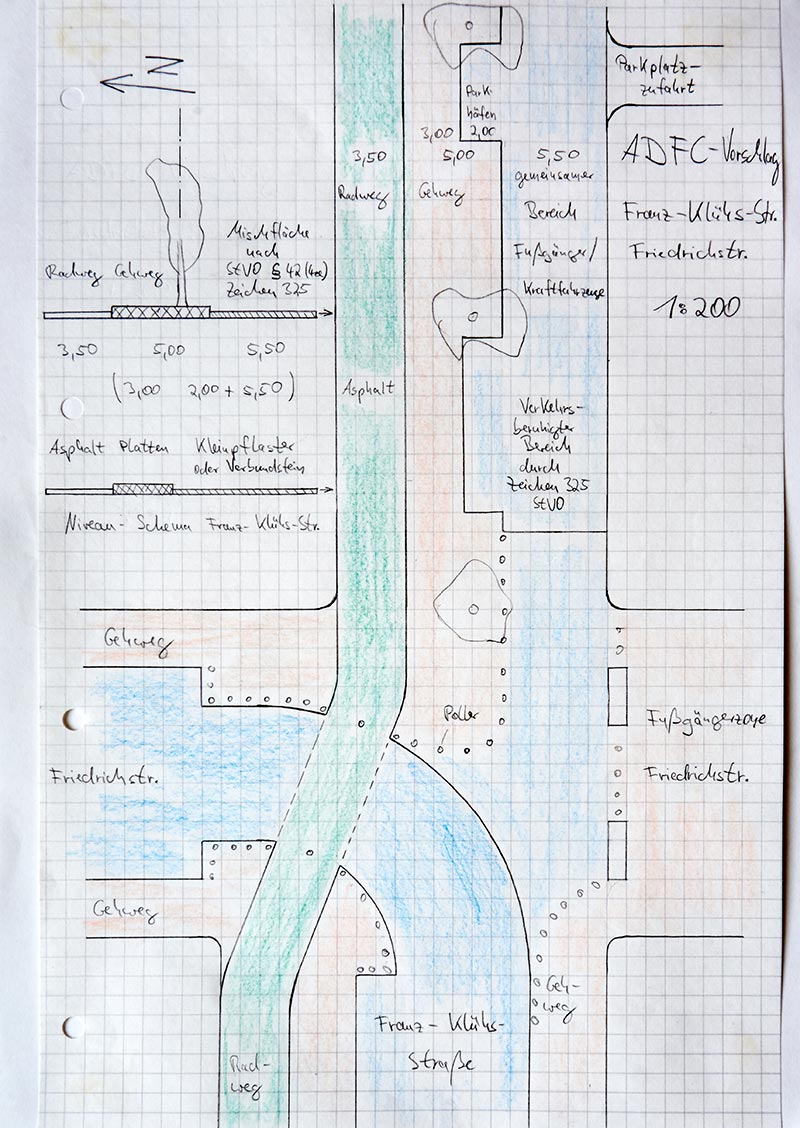 N
Parkplatz-
zufahrt
ADFC-Vorschlag
Franz-Klühs-Str.
Friedrichstr.
1:200
Park-
häfen
2,00
3,00
3,50
5,00
5,50
Radweg
Gehweg
gemeinsamer
Bereich
Fußgänger/
Kraftfahrzeuge
Mischfläche
nach
StVO § 42 (4a)
Zeichen 325
Radweg Gehweg
3,50 5,00 5,50
(3,00 2,00 + 5,50)
Asphalt
Verkehrs-
beruhigter
Bereich
durch
Zeichen 325
StVO
Asphalt Platten Kleinpflaster
oder Verbundstein
Niveau-Schema Franz-Klühs-Str.
Gehweg
Poller
Fußgängerzone
Friedrichstr.
Friedrichstr.
Gehweg
Geh-
weg
Franz-Klühs-
Straße
Rad-
weg